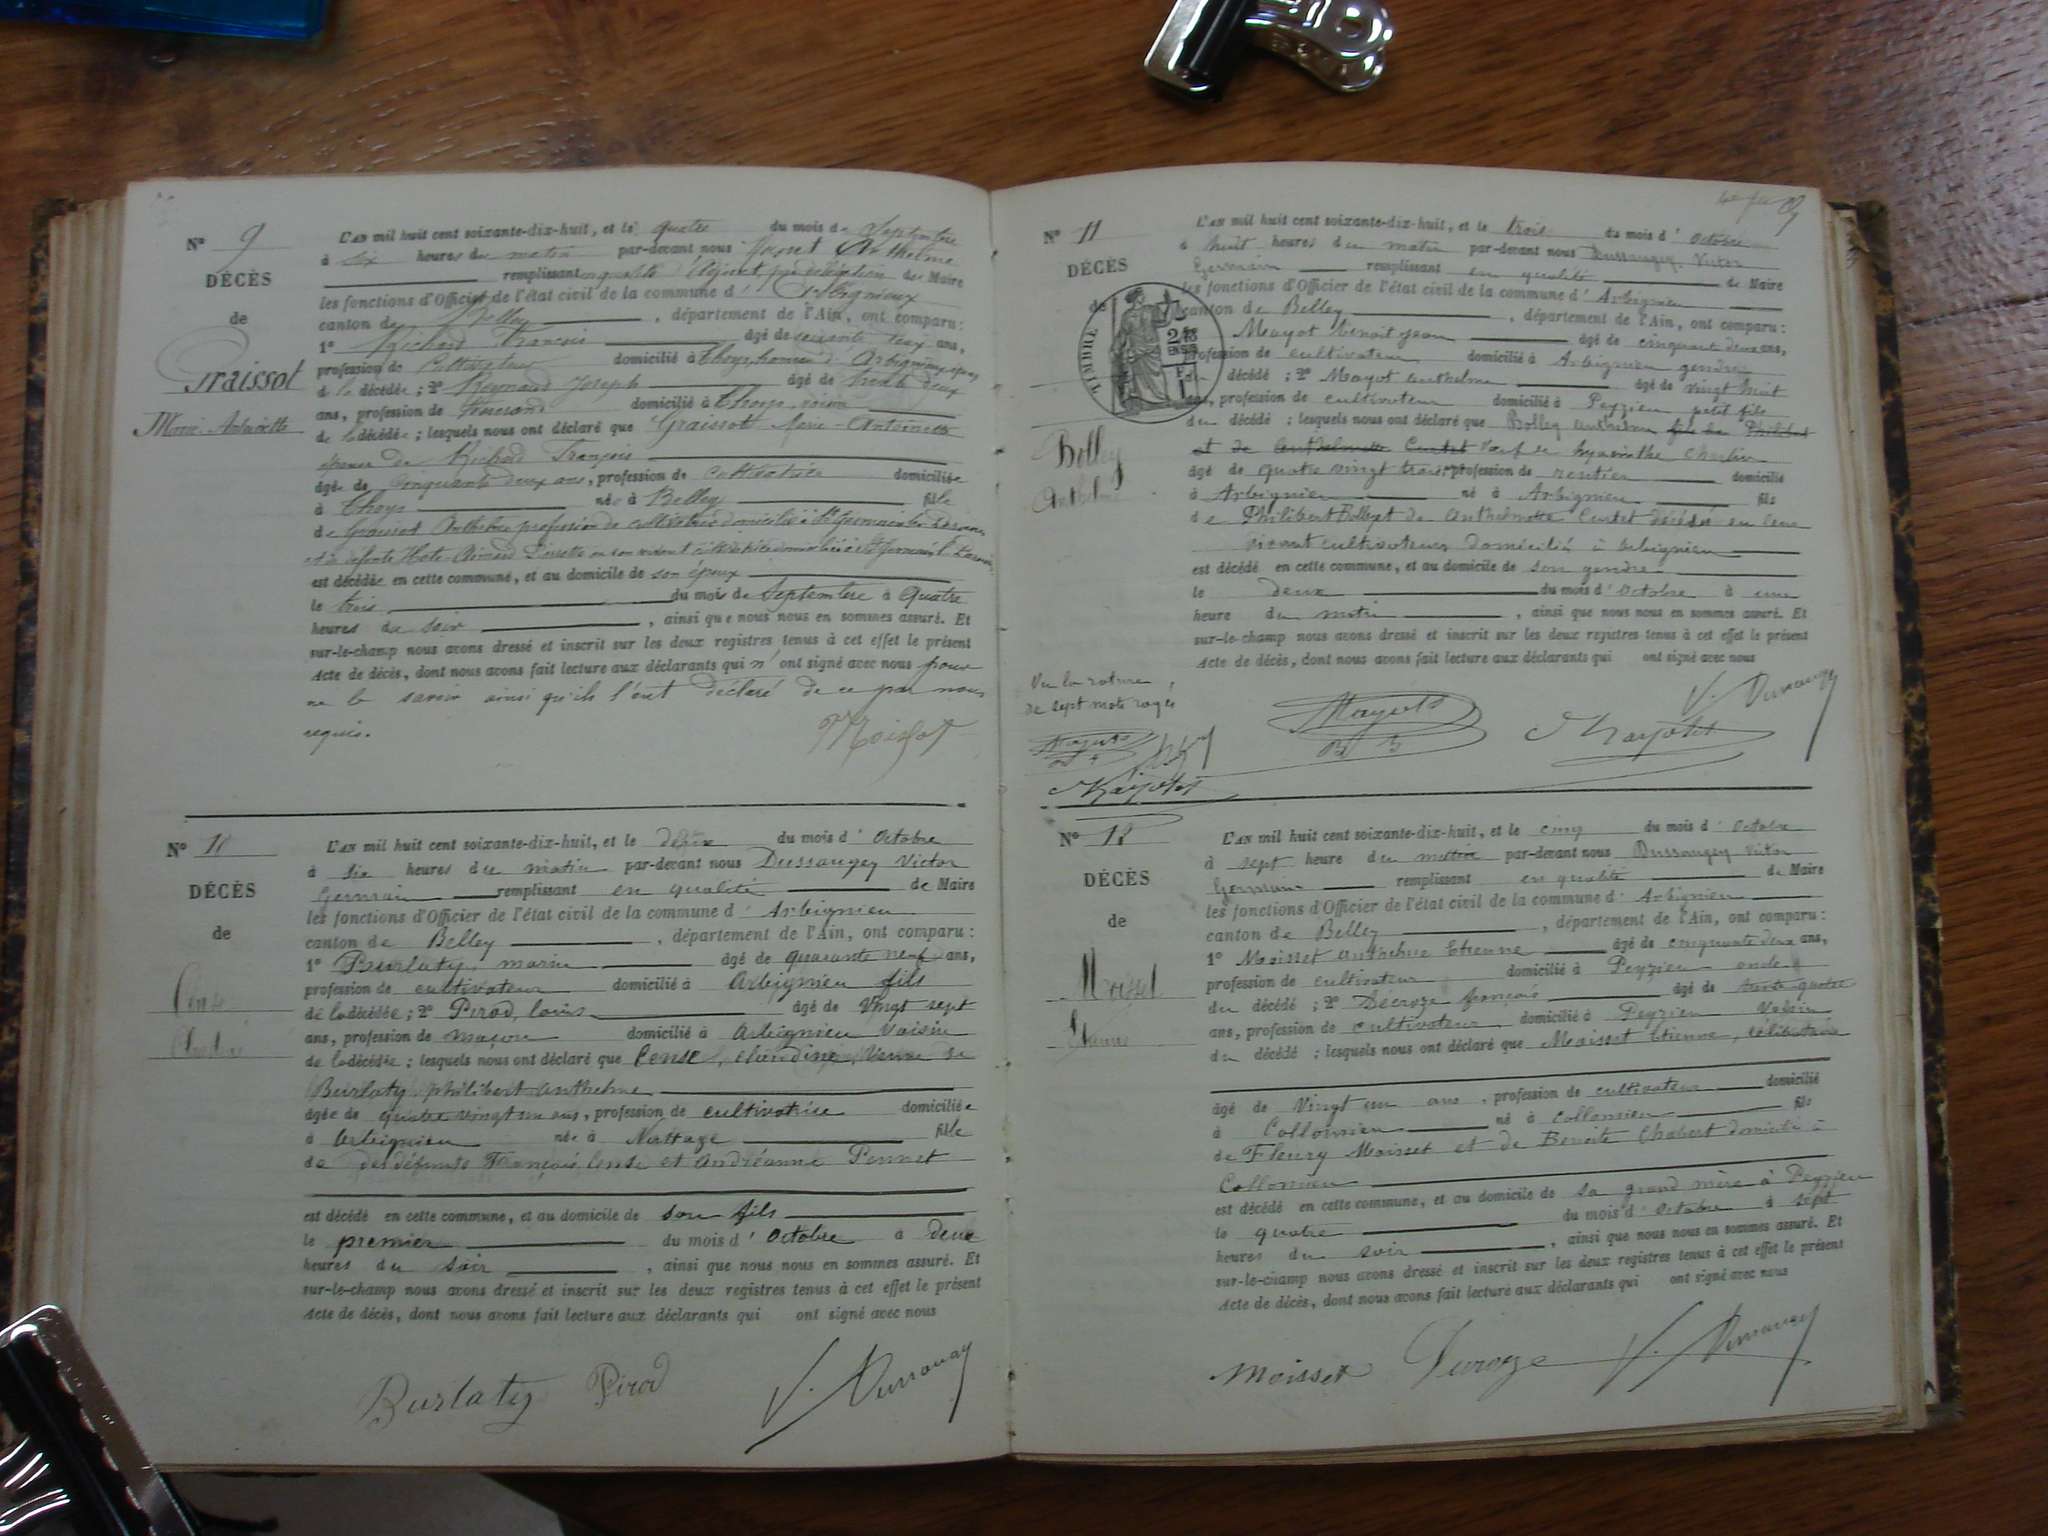 N° 9
DÉCÈS
de
Graissot
Marie Antoinette
L'AN mil huit cent soixante-dix-huit, et le quatre du mois de Septembre
à six heures du matin par-devant nous Anthelme
remplissant en qualité d'Adjoint par délégation de Maire
les fonctions d'Officier de l'état civil de la commune d' Arbignieux
canton de Belley, département de l'Ain, ont comparu :
1° Richard François âgé de soixante ans,
profession de Cultivateur domicilié à Thoys, hameau d'Arbignieux époux
de la décédée ; 2° Reynaud Joseph âgé de trente deux
ans, profession de domicilié à Thoys, voisin
de la décédée ; lesquels nous ont déclaré que Graissot Marie-Antoinette
épouse de Richard François
âgée de Cinquante deux ans, profession de cultivatrice domiciliée
à Thoys née à Belley fille
de Graissot Anthelme profession de cultivateur domicilié à St Germain les Paroisses
et de défunte en son vivant cultivatrice domiciliée à St Germain l. Paroisses
est décédée en cette commune, et au domicile de son époux
le trois du mois de Septembre à Quatre
heures du soir, ainsi que nous nous en sommes assuré. Et
sur-le-champ nous avons dressé et inscrit sur les deux registres tenus à cet effet le présent
Acte de décès, dont nous avons fait lecture aux déclarants qui n'ont signé avec nous pour
ne le savoir ainsi qu'ils l'ont déclaré de ce par nous
requis.
N° 10
DÉCÈS
de
Cense
L'AN mil huit cent soixante-dix-huit, et le deux du mois d' Octobre
à six heures du matin par-devant nous Dussaugey Victor
Germain remplissant en qualité de Maire
les fonctions d'Officier de l'état civil de la commune d' Arbignieu
canton de Belley, département de l'Ain, ont comparu :
1° Burlaty, marin âgé de quarante neuf ans,
profession de cultivateur domicilié à Arbignieu fils
de la décédée ; 2° Pirod, louis âgé de Vingt sept
ans, profession de maçon domicilié à Arbignieu Voisin
de la décédée ; lesquels nous ont déclaré que Cense, claudine, Veuve de
Burlaty, philibert anthelme
âgée de quatre vingt un ans, profession de cultivatrice domiciliée
à Arbignieu née à Nattage fille
de des défunts François Cense et Andréanne Pernet
est décédé en cette commune, et au domicile de son fils
le premier du mois d' Octobre à deux
heures du soir, ainsi que nous nous en sommes assuré. Et
sur-le-champ nous avons dressé et inscrit sur les deux registres tenus à cet effet le présent
Acte de décès, dont nous avons fait lecture aux déclarants qui ont signé avec nous
Burlaty Pirod V. Dussaugey
N° 11
DÉCÈS
de
TIMBRE
Belley
Anthelme
L'AN mil huit cent soixante-dix-huit, et le trois du mois d' Octobre
à huit heures du matin par-devant nous Dussaugey Victor
Germain remplissant en qualité de Maire
les fonctions d'Officier de l'état civil de la commune d' Arbignieu
canton de Belley, département de l'Ain, ont comparu :
Mayot benoit jean âgé de cinquante deux ans,
profession de cultivateur domicilié à Arbignieu gendre
du décédé ; 2° Mayot anthelme âgé de vingt huit
ans, profession de cultivateur domicilié à Peyzieu petit fils
du décédé ; lesquels nous ont déclaré que Belley anthelme fils de Philibert
et de Anthelmette Curtet Veuf de hyacinthe Charlin
âgé de quatre vingt trois profession de rentier domicilié
à Arbignieu né à Arbignieu fils
de Philibert Belley et de Anthelmette Curtet décédés en leur
vivant cultivateurs domiciliés à Arbignieu
est décédé en cette commune, et au domicile de son gendre
le deux du mois d'Octobre à une
heure du matin, ainsi que nous nous en sommes assuré. Et
sur-le-champ nous avons dressé et inscrit sur les deux registres tenus à cet effet le présent
Acte de décès, dont nous avons fait lecture aux déclarants qui ont signé avec nous
Vu la rature
de sept mots rayés
V. Dussaugey
N° 12
DÉCÈS
de
Moisset
Etienne
L'AN mil huit cent soixante-dix-huit, et le cinq du mois d' Octobre
à sept heure du matin par-devant nous Dussaugey Victor
Germain remplissant en qualité de Maire
les fonctions d'Officier de l'état civil de la commune d' Arbignieu
canton de Belley, département de l'Ain, ont comparu :
1° Moisset anthelme Etienne âgé de cinquante deux ans,
profession de cultivateur domicilié à Peyzieu oncle
du décédé ; 2° Decroze françois âgé de trente quatre
ans, profession de cultivateur domicilié à Peyzieu Voisin
du décédé ; lesquels nous ont déclaré que Moisset Etienne, célibataire
âgé de Vingt un ans, profession de cultivateur domicilié
à Collomieu né à Collomieu fils
de Fleury Moisset et de Benoite Chabert domiciliés à
Collomieu
est décédé en cette commune, et au domicile de sa grand mère à Peyzieu
le quatre du mois d' Octobre à sept
heures du soir, ainsi que nous nous en sommes assuré. Et
sur-le-champ nous avons dressé et inscrit sur les deux registres tenus à cet effet le présent
Acte de décès, dont nous avons fait lecture aux déclarants qui ont signé avec nous
Moisset Decroze V. Dussaugey